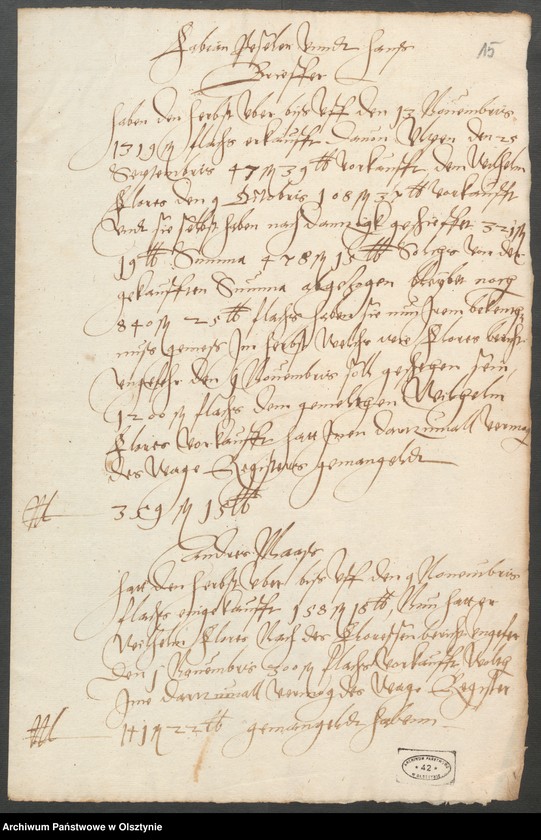 15
Fabian Peseler unndt Hanß
Brieffer
haben den herbst uber biß Uff den 13 Novembris
1319 flachs erkaufft davon den 25
Septembris 47 39 ℔ vorkaufft, dem Wilhelm
Flores den 9 Octobris 108 37 ℔ vorkaufft
undt sie selbst haben nach Danzigk geschieffet 321
19 ℔ Summa 478 15 ℔ Solches von der
gekaufften Summa abgezogen bleybet noch
840 25 ℔ flachs haben sie nun Irem bekent
nuß gemeß Im herbst welchs wie Flores bericht
ungefehr den 9 Novembris soll geschehen sein,
1200 flachs dem gemelten Wilhelm
Flores Vorkaufft hatt Inen darzumall vermog
des Wage Registers gemangeldt
359 15 ℔
Andres Maaß
hatt den herbst uber biß Uff den 9 Novembris
flachs eingekaufft 158 18 ℔, Nun hatt er
Wilhelm Flores Nach des Floressen bericht ungefer
den 1 Novembris 300 flachs Vorkaufft
Ime darzumall vermog des Wage Register
141 22 ℔ gemangeldt habenn
ARCHIWUM PAŃSTWOWE
* 42 *
w OLSZTYNIE
Archiwum Państwowe w Olsztynie